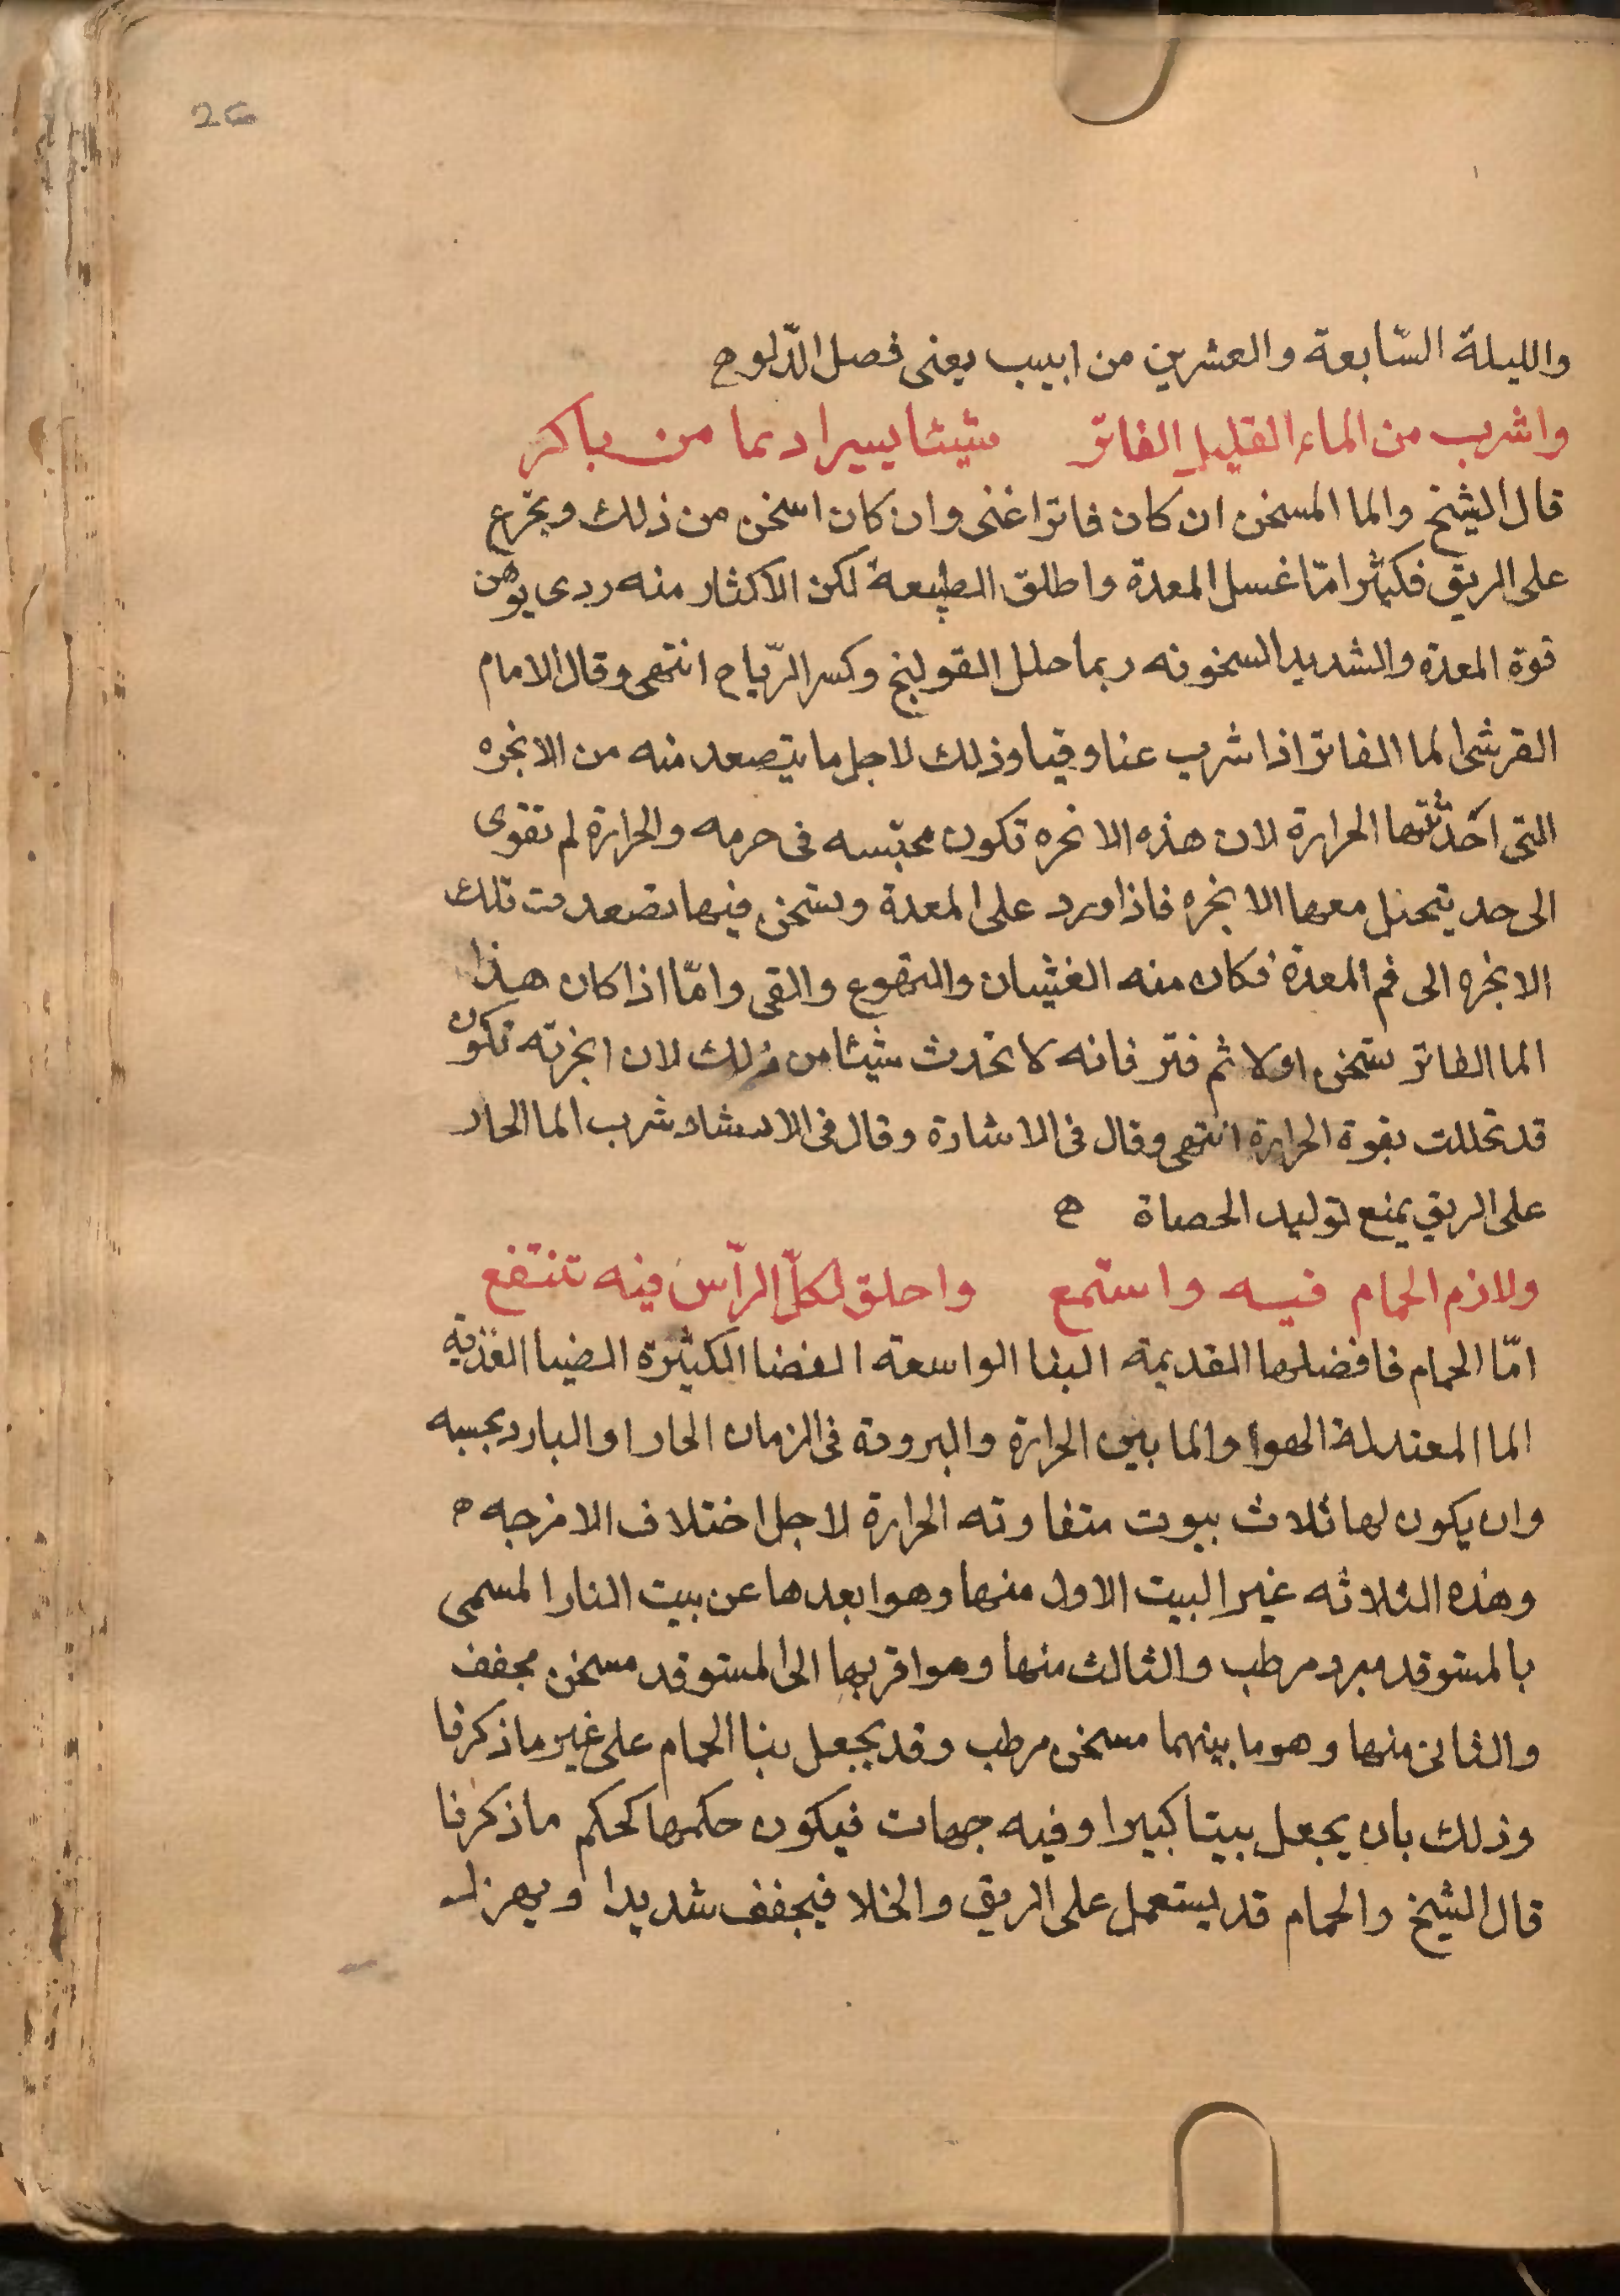 26
والليلة السّابعة والعشرين من ابيب يعنى فصل الدّلو ح
واشرب من الماء القليل الفاتر شيئا يسيرا دىما من باكر
قال الشيخ والما المسخن ان كان فاترا غثى وان كان اسخن من ذلك وتجرع
على الريق فكثيرا مّا غسل المعدة واطلق الطبيعة لكن الاكثار منه ردى يوهن
قوة المعدة والشديد السخونه ربما حلل القولنج وكسر الرّياح انتهى وقال الامام
القرشى الما الفاتر اذا شرب غثا وقيا وذلك لاجل ما يتصعد منه من الابخره
التى احدثتها الحرارة لان هذه الابخره تكون محتبسه فى جرمه والحرارة لم تقوى
الى حد يتحلل معها الابخره فاذا ورد على المعدة وسخن فيها تصعدت تلك
الابخره الى فم المعدة فكان منه الغثيان والتهوع والقى وامّا اذا كان هذا
الما الفاتر سخن اولا ثم فتر فانه لا تحدث شيئا من ذلك لان ابخرته تكون
قد تحللت بقوة الحرارة انتهى وقال فى الاشارة وقال فى الارشاد شرب الما الحار
على الريق يمنع توليد الحصاة ه
ولازم الحمام فيه واستمع واحلق لكلّ الرّأس فيه تنتفع
امّا الحمام فافضلها القديمة البنا الواسعة الفضا الكثيرة الضيا العذبة
الما المعتدلة الهوا والما بين الحرارة والبرودة فى الزمان الحار او البارد بحسبه
وان يكون لها ثلاث بيوت متفاوته الحرارة لاجل اختلاف الامزجه ه
وهذه الثلاثه غير البيت الاول منها وهو ابعدها عن بيت النار المسمى
بالمستوقد مبرد مرطب والثالث منها وهو اقربها الى المستوقد مسخن مجفف
والثانى منها وهو ما بينهما مسخن مرطب وقد يجعل بنا الحمام على غير ما ذكرنا
وذلك بان يجعل بيتا كبيرا وفيه جهات فيكون حكمها كحكم ما ذكرنا
قال الشيخ والحمام قد يستعمل على الريق والخلا فيجفف شديدا ويهزل